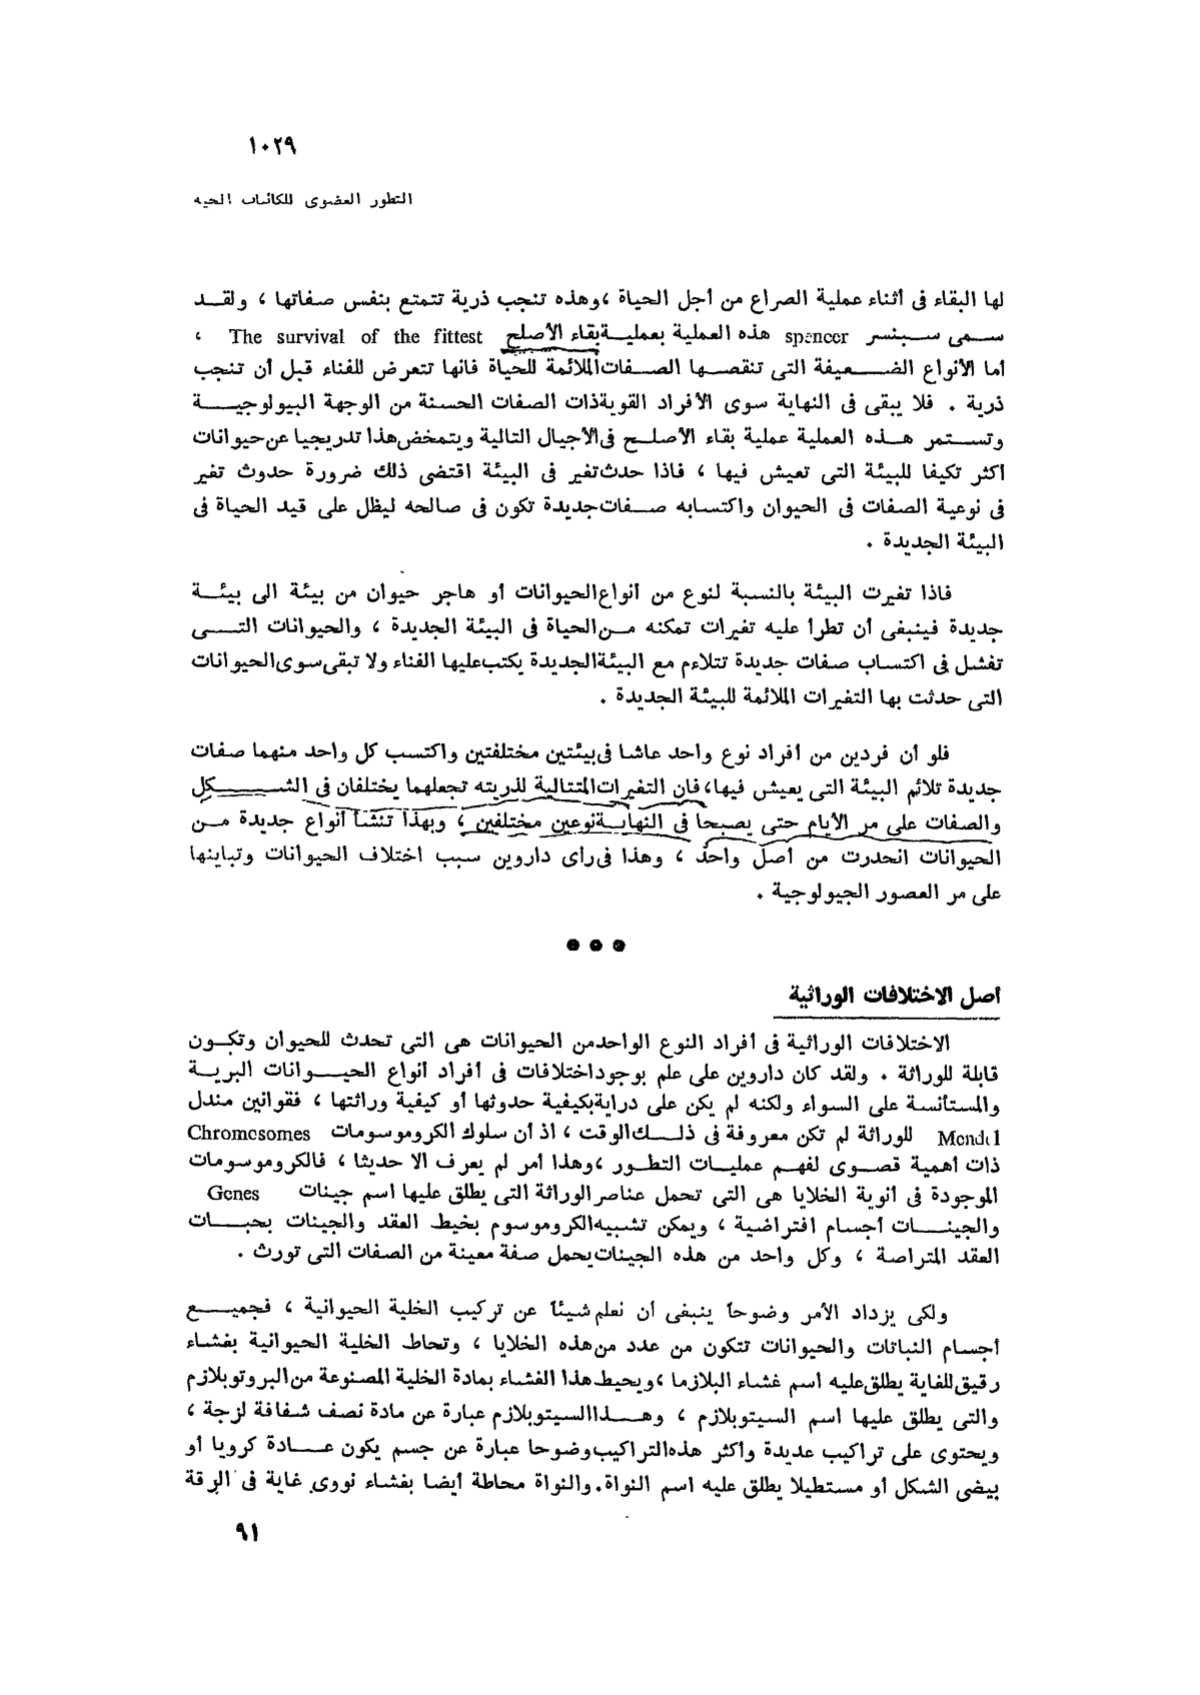 ١٠٢٩
التطور العضوى للكائنات الحيه
لها البقاء فى أثناء عملية الصراع من أجل الحياة ، وهذه تنجب ذرية تتمتع بنفس صفاتها ، ولقــد
ســمى ســبنسر spencer هذه العملية بعمليــة بقاء الأصلح The survival of the fittest ،
أما الأنواع الضــعيفة التى تنقصــها الصــفات الملائمة للحياة فانها تتعرض للفناء قبل أن تنجب
ذرية . فلا يبقى فى النهاية سوى الأفراد القوية ذات الصفات الحسنة من الوجهة البيولوجيــة
وتســتمر هــذه العملية عملية بقاء الأصلــح فى الأجيال التالية ويتمخض هذا تدريجيا عن حيوانات
أكثر تكيفا للبيئة التى تعيش فيها ، فاذا حدث تغير فى البيئة اقتضى ذلك ضرورة حدوث تغير
فى نوعية الصفات فى الحيوان واكتسابه صــفات جديدة تكون فى صالحه ليظل على قيد الحياة فى
البيئة الجديدة .
فاذا تغيرت البيئة بالنسبة لنوع من أنواع الحيوانات أو هاجر حيوان من بيئة الى بيئــة
جديدة فينبغى أن تطرأ عليه تغيرات تمكنه مــن الحياة فى البيئة الجديدة ، والحيوانات التــى
تفشل فى اكتســاب صفات جديدة تتلاءم مع البيئة الجديدة يكتب عليها الفناء ولا تبقى سوى الحيوانات
التى حدثت بها التغيرات الملائمة للبيئة الجديدة .
فلو أن فردين من أفراد نوع واحد عاشا فى بيئتين مختلفتين واكتسب كل واحد منهما صفات
جديدة تلائم البيئة التى يعيش فيها ، فان التغيرات المتتالية لذريته تجعلهما يختلفان فى الشــكل
والصفات على مر الأيام حتى يصبحا فى النهايــة نوعين مختلفين ، وبهذا تنشأ أنواع جديدة مــن
الحيوانات انحدرت من أصل واحد ، وهذا فى رأى داروين سبب اختلاف الحيوانات وتباينها
على مر العصور الجيولوجية .
أصل الاختلافات الوراثية
الاختلافات الوراثية فى أفراد النوع الواحد من الحيوانات هى التى تحدث للحيوان وتكــون
قابلة للوراثة . ولقد كان داروين على علم بوجود اختلافات فى أفراد أنواع الحيــوانات البريــة
والمستأنسة على السواء ولكنه لم يكن على دراية بكيفية حدوثها أو كيفية وراثتها ، فقوانين مندل
Mendel للوراثة لم تكن معروفة فى ذلــك الوقت ، اذ أن سلوك الكروموسومات Chromosomes
ذات أهمية قصــوى لفهــم عمليــات التطور ، وهذا أمر لم يعرف الا حديثا ، فالكروموسومات
الموجودة فى أنوية الخلايا هى التى تحمل عناصر الوراثة التى يطلق عليها اسم جينات Genes
والجينــات أجسام افتراضية ، ويمكن تشبيه الكروموسوم بخيط العقد والجينات بحبــات
العقد المتراصة ، وكل واحد من هذه الجينات يحمل صفة معينة من الصفات التى تورث .
ولكى يزداد الأمر وضوحاً ينبغى أن نعلم شيئاً عن تركيب الخلية الحيوانية ، فجميــع
أجسام النباتات والحيوانات تتكون من عدد من هذه الخلايا ، وتحاط الخلية الحيوانية بغشاء
رقيق للغاية يطلق عليه اسم غشاء البلازما ، ويحيط هذا الغشاء بمادة الخلية المصنوعة من البروتوبلازم
والتى يطلق عليها اسم السيتوبلازم ، وهــذا السيتوبلازم عبارة عن مادة نصف شفافة لزجة ،
ويحتوى على تراكيب عديدة وأكثر هذه التراكيب وضوحا عبارة عن جسم يكون عــادة كرويا أو
بيضى الشكل أو مستطيلا يطلق عليه اسم النواة . والنواة محاطة أيضا بغشاء نووى غاية فى الرقة
٩١